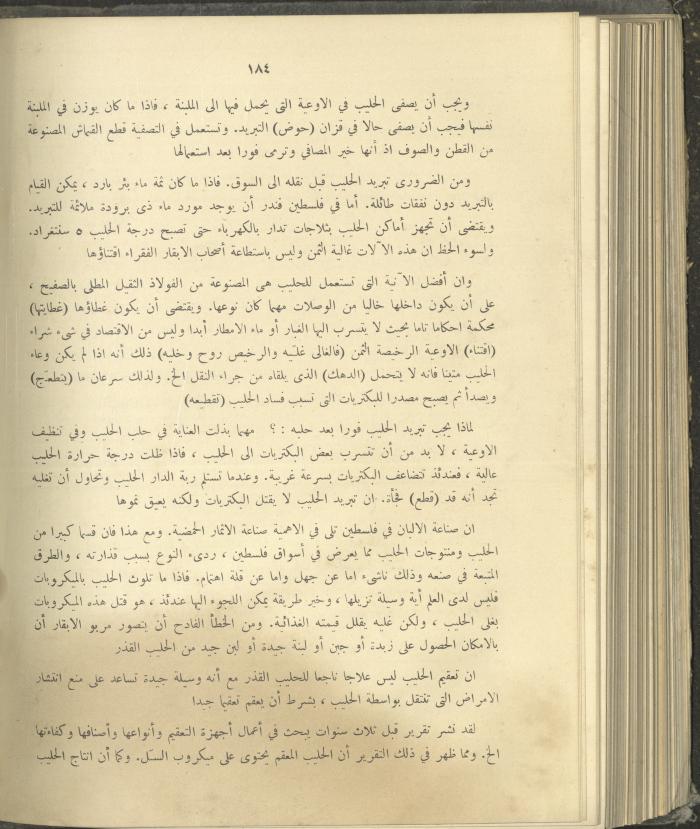 ١٨٤
ويجب أن يصفى الحليب في الاوعية التى يحمل فيها الى الملبنة ، فاذا ما كان يوزن في الملبنة
نفسها فيجب أن يصفى حالا في قزان (حوض) التبريد. وتستعمل في التصفية قطع القماش المصنوعة
من القطن والصوف اذ أنها خير المصافي وترمى فورا بعد استعمالها
ومن الضرورى تبريد الحليب قبل نقله الى السوق. فاذا ما كان ثمة ماء بئر بارد ، يمكن القيام
بالتبريد دون نفقات طائلة. أما في فلسطين فندر أن يوجد مورد ماء ذى برودة ملائمة للتبريد.
ويقتضى أن تجهز أماكن الحليب بثلاجات تدار بالكهرباء حتى تصبح درجة الحليب ٥ سنتغراد.
ولسوء الحظ ان هذه الآلات غالية الثمن وليس باستطاعة أصحاب الابقار الفقراء اقتناؤها
وان أفضل الآنية التى تستعمل للحليب هى المصنوعة من الفولاذ الثقيل المطلى بالصفيح ،
على أن يكون داخلها خاليا من الوصلات مهما كان نوعها. ويقتضى أن يكون غطاؤها (غطايتها)
محكمة احكاما تاما بحيث لا يتسرب اليها الغبار أو ماء الامطار أبدا وليس من الاقتصاد في شىء شراء
(اقتناء) الاوعية الرخيصة الثمن (فالغالى غلبه والرخيص روح وخليه) ذلك أنه اذا لم يكن وعاء
الحليب متينا فانه لا يتحمل (الدهك) الذى يلقاه من جراء النقل الخ. ولذلك سرعان ما (يتطعج)
ويصدأ ثم يصبح مصدرا للبكتريات التى تسبب فساد الحليب (تقطيعه)
لماذا يجب تبريد الحليب فورا بعد حلبه : ؟ مهما بذلت العناية في حلب الحليب وفي تنظيف
الاوعية ، لا بد من أن تتسرب بعض البكتريات الى الحليب ، فاذا ظلت درجة حرارة الحليب
عالية ، فعندئذ تتضاعف البكتريات بسرعة غريبة. وعندما تستلم ربة الدار الحليب وتحاول أن تغليه
تجد أنه قد (قطع) فجأة. ان تبريد الحليب لا يقتل البكتريات ولكنه يعيق نموها
ان صناعة الالبان في فلسطين تلى في الاهمية صناعة الاثمار الحمضية. ومع هذا فان قسما كبيرا من
الحليب ومنتوجات الحليب مما يعرض في أسواق فلسطين ، ردىء النوع بسبب قذارته ، والطرق
المتبعة في صنعه وذلك ناشىء اما عن جهل واما عن قلة اهتمام. فاذا ما تلوث الحليب بالميكروبات
فليس لدى العلم أية وسيلة تزيلها ، وخير طريقة يمكن اللجوء اليها عندئذ ، هو قتل هذه الميكروبات
بغلى الحليب ، ولكن غليه يقلل قيمته الغذائية. ومن الخطأ الفادح أن يتصور مربو الابقار أن
بالامكان الحصول على زبدة أو جبن أو لبنة جيدة أو لبن جيد من الحليب القذر
ان تعقيم الحليب ليس علاجا ناجعا للحليب القذر مع أنه وسيلة جيدة تساعد على منع انتشار
الامراض التى تنتقل بواسطة الحليب ، بشرط أن يعقم تعقيما جيدا
لقد نشر تقرير قبل ثلاث سنوات يبحث في أعمال أجهزة التعقيم وأنواعها وأصنافها وكفاءتها
الخ. ومما ظهر في ذلك التقرير أن الحليب المعقم يحتوى على ميكروب السل. وكما أن انتاج الحليب